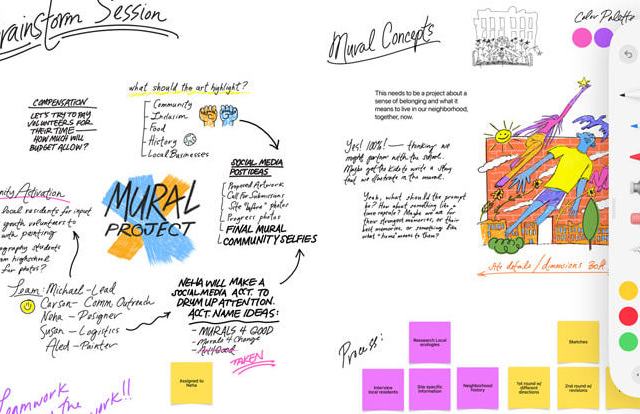 Brainstorm Session
what should the art highlight?
Community
Inclusion
Food
History
Local Businesses
COMPENSATION
LET'S TRY TO PAY
VOLUNTEERS FOR
THEIR TIME —
HOW MUCH WILL
BUDGET ALLOW?
SOCIAL MEDIA
POST IDEAS
Proposed Artwork
Call for Submissions
Site "Before" photos
Progress photos
FINAL MURAL
COMMUNITY SELFIES
MURAL
PROJECT
Activation
local residents for input
youth volunteers to
with painting
students
from highschool
for photos?
Team: Michael - Lead
Carson - Comm Outreach
Neha - Designer
Susan - Logistics
Aled - Painter
NEHA WILL MAKE A
SOCIAL MEDIA ACCT. TO
DRUM UP ATTENTION.
ACCT. NAME IDEAS:
- MURALS 4 GOOD
- Murals 4 Change
- Art4Good
TAKEN
Assigned to
Neha
Mural Concepts
Color Palette
This needs to be a project about a
sense of belonging and what it
means to live in our neighborhood,
together, now.
Yes! 100%! — thinking we
might partner with the school.
Maybe get the kids to write a story
that we illustrate in the mural.
Yeah, what should the prompt
be? How about something like a
time capsule? Maybe we ask for
their strongest memories, or their
best memories, or something like
what "home" means to them?
site details / dimensions
Process:
Research Local
Sketches
Interview
local residents
Site specific
information
Neighborhood
history
1st round w/
different
directions
2nd round w/
revisions